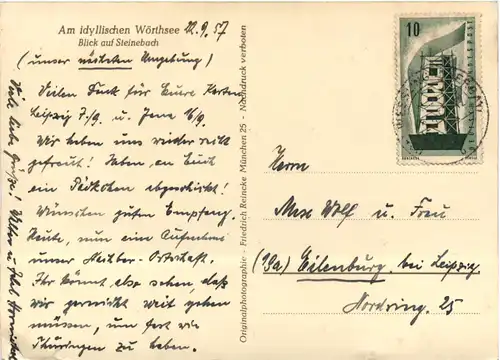 Am idyllischen Wörthsee 22.9.57
Blick auf Steinebach
(unser nächsten Umgebung)
Vielen Dank für Eure Karten
Leipzig 7./9. u. Jena 16/9.
Wir haben uns wieder sehr
gefreut! Haben an Euch
ein Päckchen abgeschickt!
Wünschen guten Empfang.
Heute, nun eine Aufnahme
unser Nachbar-Ortschaft.
Ihr könnt also sehen, daß
wir garnicht weit gehen
müssen, um fast wie
Thüringen zu haben.
Viele liebe Grüsse!
Originalphotographie - Friedrich Reincke München 25 - Nachdruck verboten
10
Herrn
Max Wolf u. Frau
(19a) Eilenburg, bei Leipzig
Nordring. 25